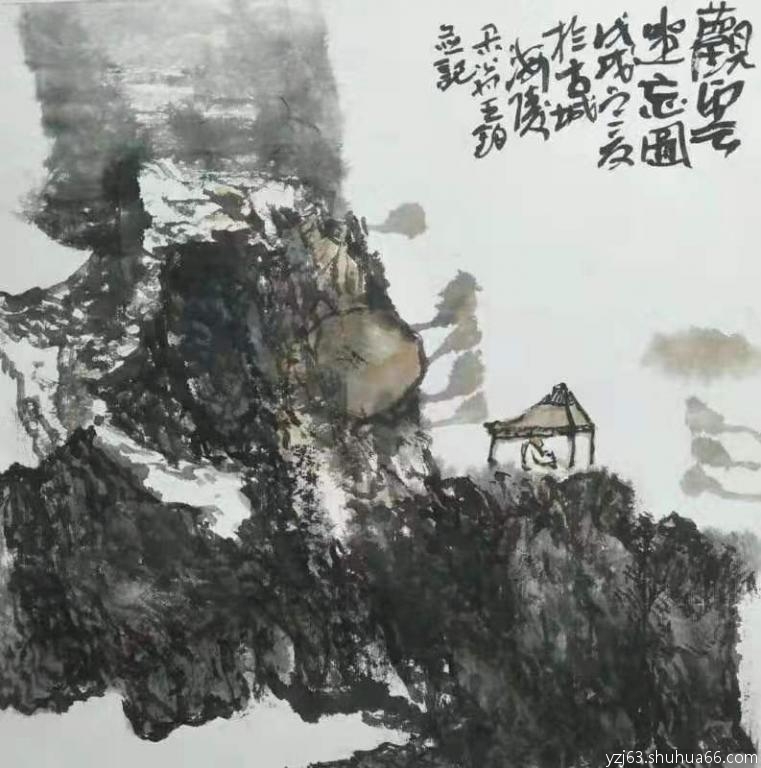 觀雲
坐忘圖
戊戌之夏
於古城
海陵
翁王
並記
yzj63.shuhua66.com